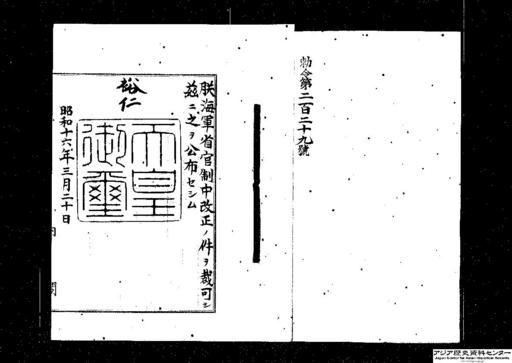 勅令第二百二十九號
朕海軍省官制中改正ノ件ヲ裁可シ
茲ニ之ヲ公布セシム
裕仁
天皇
御璽
昭和十六年三月二十日
アジア歴史資料センター
Japan Center for Asian Historical Records